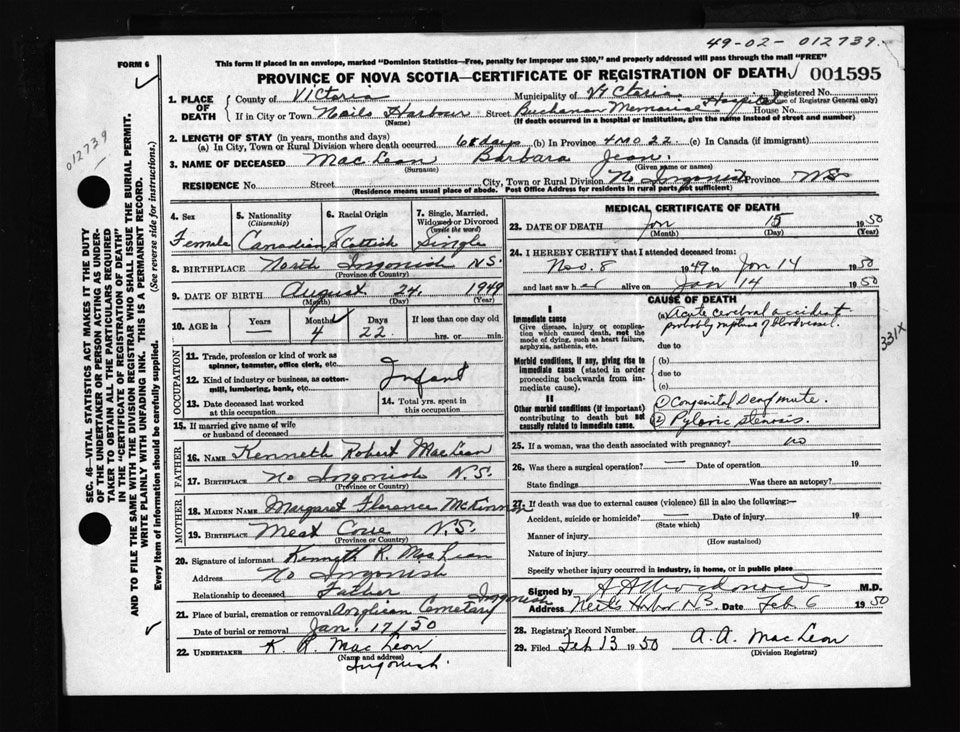 49-02-012739.
FORM 6
This form if placed in an envelope, marked "Dominion Statistics—Free, penalty for improper use $300," and properly addressed will pass through the mail "FREE"
PROVINCE OF NOVA SCOTIA—CERTIFICATE OF REGISTRATION OF DEATH
001595
012739
1. PLACE OF DEATH
County of Victoria Municipality of Victoria Registered No.
(For use of Registrar General only)
If in City or Town Neils Harbour Street Buchanan Memorial Hospital House No.
(Name) (If death occurred in a hospital or institution, give the name instead of street and number)
2. LENGTH OF STAY (in years, months and days)
(a) In City, Town or Rural Division where death occurred 68 days (b) In Province 4 MO 22. (c) In Canada (if immigrant)
3. NAME OF DECEASED MacLean Barbara Jean.
(Surname) (Given name or names)
RESIDENCE No. Street City, Town or Rural Division No Ingonish Province NS
(Residence means usual place of abode. Post Office Address for residents in rural parts not sufficient)
4. Sex Female
5. Nationality (Citizenship) Canadian
6. Racial Origin Scottish
7. Single, Married, Widowed or Divorced (write the word) Single
8. BIRTHPLACE North Ingonish N.S.
(Province or Country)
9. DATE OF BIRTH August 24, 1949
(Month) (Day) (Year)
10. AGE in Years — Months 4 Days 22. If less than one day old
hrs. or min.
OCCUPATION
11. Trade, profession or kind of work as spinner, teamster, office clerk, etc.
12. Kind of industry or business, as cotton-mill, lumbering, bank, etc.
Infant
13. Date deceased last worked at this occupation
14. Total yrs. spent in this occupation
15. If married give name of wife or husband of deceased
FATHER
16. Name Kenneth Robert MacLean
17. Birthplace No Ingonish N.S.
(Province or Country)
MOTHER
18. MAIDEN NAME Margaret Florence McKinnon
19. BIRTHPLACE Meat Cove N.S.
(Province or Country)
20. Signature of informant Kenneth R. MacLean
Address No Ingonish
Relationship to deceased Father
21. Place of burial, cremation or removal Anglican Cemetary Ingonish
Date of burial or removal Jan. 17/50
22. UNDERTAKER K. R. MacLean
(Name and address)
Ingonish.
MEDICAL CERTIFICATE OF DEATH
23. DATE OF DEATH Jan 15 1950
(Month) (Day) (Year)
24. I HEREBY CERTIFY that I attended deceased from:
Nov. 8 1949 to Jan 14 1950
and last saw her alive on Jan 14 1950
CAUSE OF DEATH
I
Immediate cause
Give disease, injury or complication which caused death, not the mode of dying, such as heart failure, asphyxia, asthenia, etc.
(a) Acute cerebral accident
probably rupture of bloodvessel.
due to
Morbid conditions, if any, giving rise to immediate cause (stated in order proceeding backwards from immediate cause).
(b)
due to
(c)
II
Other morbid conditions (if important) contributing to death but not causally related to immediate cause.
(1) Congenital deafmute.
(2) Pyloric stenosis.
331X
25. If a woman, was the death associated with pregnancy? no
26. Was there a surgical operation? — Date of operation 19
State findings Was there an autopsy?
27. If death was due to external causes (violence) fill in also the following:—
Accident, suicide or homicide? Date of injury 19
(State which)
Manner of injury
(How sustained)
Nature of injury
Specify whether injury occurred in industry, in home, or in public place
Signed by M.D.
Address Neils Harbor N.S. Date Feb 6 1950
28. Registrar's Record Number
29. Filed Feb 13 1950 A. A. MacLean
(Division Registrar)
SEC. 46—VITAL STATISTICS ACT MAKES IT THE DUTY
OF THE UNDERTAKER OR PERSON ACTING AS UNDER-
TAKER TO OBTAIN ALL THE PARTICULARS REQUIRED
IN THE "CERTIFICATE OF REGISTRATION OF DEATH"
AND TO FILE THE SAME WITH THE DIVISION REGISTRAR WHO SHALL ISSUE THE BURIAL PERMIT.
WRITE PLAINLY WITH UNFADING INK. THIS IS A PERMANENT RECORD.
Every item of information should be carefully supplied. (See reverse side for instructions.)